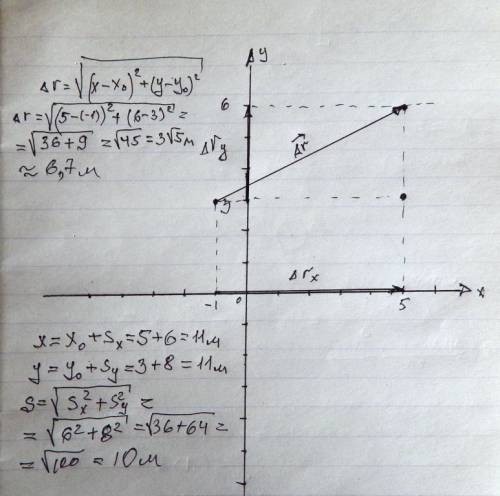 Δr = √(x-x₀)² + (y-y₀)²
Δr = √(5-(-1))² + (6-3)² =
= √36+9 = √45 = 3√5 м
≈ 6,7 м
y
6
Δr y
Δr
3
Δr x
-1
0
5
x
x = x₀ + Sx = 5+6 = 11 м
y = y₀ + Sy = 3+8 = 11 м
S = √Sx² + Sy² =
= √6² + 8² = √36+64 =
= √100 = 10 м